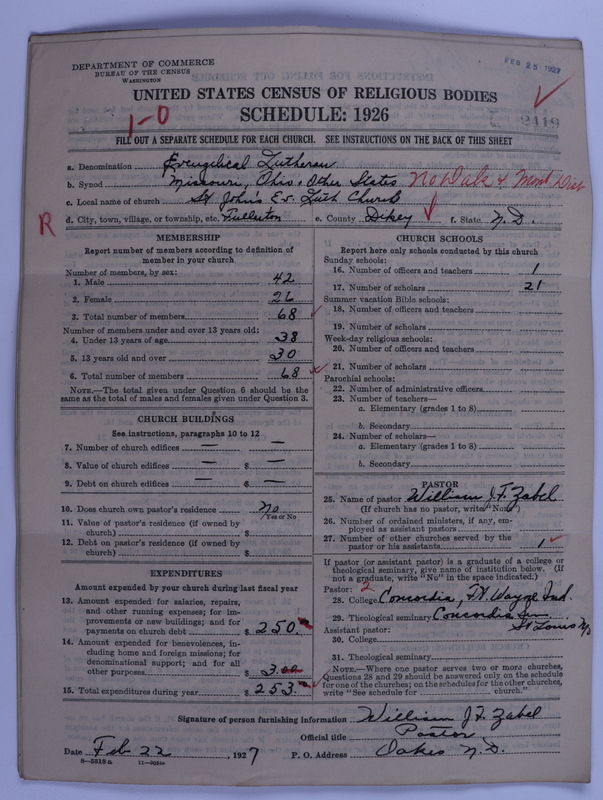 FEB 25 1927
DEPARTMENT OF COMMERCE
BUREAU OF THE CENSUS
WASHINGTON
UNITED STATES CENSUS OF RELIGIOUS BODIES
SCHEDULE: 1926
2119
1-0
FILL OUT A SEPARATE SCHEDULE FOR EACH CHURCH. SEE INSTRUCTIONS ON THE BACK OF THIS SHEET
a. Denomination Evangelical Lutheran
b. Synod Missouri, Ohio & Other States No Dak & Mont Dist
c. Local name of church St Johns Ev. Luth Church
R
d. City, town, village, or township, etc. Fullerton e. County Dikey f. State N.D.
MEMBERSHIP
Report number of members according to definition of
member in your church
Number of members, by sex:
1. Male 42
2. Female 26
3. Total number of members 68
Number of members under and over 13 years old:
4. Under 13 years of age 38
5. 13 years old and over 30
6. Total number of members 68
NOTE.—The total given under Question 6 should be the
same as the total of males and females given under Question 3.
CHURCH BUILDINGS
See instructions, paragraphs 10 to 12
7. Number of church edifices — —
8. Value of church edifices — $ —
9. Debt on church edifices — $ —
10. Does church own pastor's residence? No
Yes or No
11. Value of pastor's residence (if owned by
church) $
12. Debt on pastor's residence (if owned by
church) $
EXPENDITURES
Amount expended by your church during last fiscal year
13. Amount expended for salaries, repairs,
and other running expenses; for im-
provements or new buildings; and for
payments on church debt $ 250.
14. Amount expended for benevolences, in-
cluding home and foreign missions; for
denominational support; and for all
other purposes $ 3.00
15. Total expenditures during year $ 253.
CHURCH SCHOOLS
Report here only schools conducted by this church
Sunday schools:
16. Number of officers and teachers 1
17. Number of scholars 21
Summer vacation Bible schools:
18. Number of officers and teachers
19. Number of scholars
Week-day religious schools:
20. Number of officers and teachers
21. Number of scholars
Parochial schools:
22. Number of administrative officers
23. Number of teachers—
a. Elementary (grades 1 to 8)
b. Secondary
24. Number of scholars—
a. Elementary (grades 1 to 8)
b. Secondary
PASTOR
25. Name of pastor William J.F. Zabel
(If church has no pastor, write "None")
26. Number of ordained ministers, if any, em-
ployed as assistant pastors
27. Number of other churches served by the
pastor or his assistants 1
If pastor (or assistant pastor) is a graduate of a college or
theological seminary, give name of institution below. (If
not a graduate, write "No" in the space indicated.)
Pastor: 2
28. College Concordia, Ft. Wayne Ind.
29. Theological seminary Concordia Sem.
St Louis Mo
Assistant pastor:
30. College
31. Theological seminary
NOTE.—Where one pastor serves two or more churches,
Questions 28 and 29 should be answered only on the schedule
for one of the churches; on the schedules for the other churches,
write "See schedule for church."
Signature of person furnishing information William J.F. Zabel
Official title Pastor
Date Feb 22, 1927 P. O. Address Oakes N.D.
8—5318a